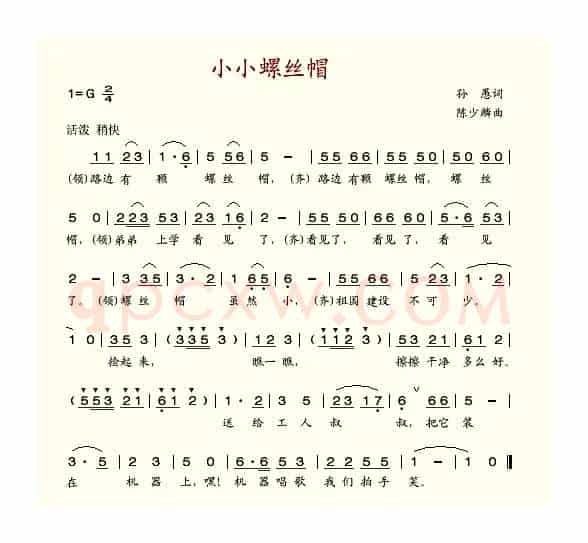 小小螺丝帽
1=G 2/4
孙 愚词
陈少麟曲
活泼 稍快
11 23 | 1·6 | 5 56 | 5 - | 55 66 | 55 50 | 50 60 |
(领)路边有 颗 螺丝 帽, (齐)路边有颗 螺丝帽, 螺 丝
5 0 | 223 53 | 23 16 | 2 - | 55 50 | 66 60 | 5·6 53 |
帽, (领)弟弟 上学 看见 了, (齐)看见了, 看见了, 看 见
2 - | 3 35 | 3·2 | 1 65 | 6 - | 55 66 | 5 23 | 1·2 |
了。 (领)螺丝 帽 虽然 小, (齐)祖国 建设 不可 少。
1 0 | 35 3 | (335 3) | 11 2 | (112 3) | 53 21 | 61 2 |
捡起来, 瞧一瞧, 擦擦 干净 多么好。
(553 21 | 61 2) | 1·2 | 3 5 | 23 17 | 6 66 | 5 5 |
送给 工人 叔 叔, 把它 装
3· 5 | 2 3 | 5 0 | 6·6 53 | 22 55 | 1 - | 1 0 ‖
在 机器 上, 嘿! 机器 唱歌 我们 拍手 笑。
qpcxw.com